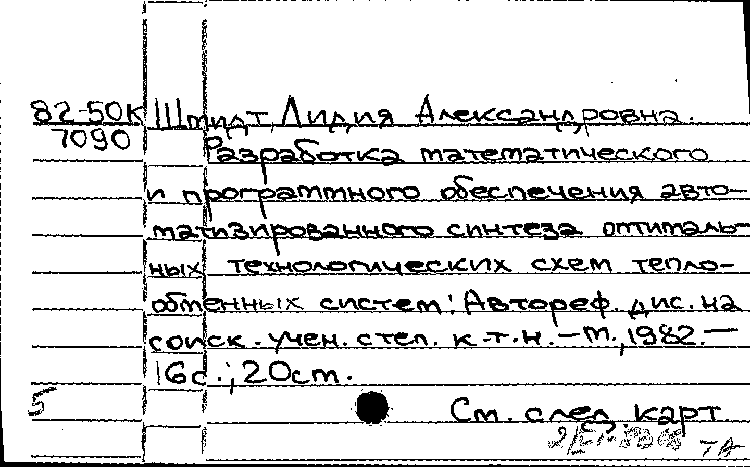 82-50К Шмидт, Лидия Александровна.
7090
Разработка математического
и программного обеспечения авто-
матизированного синтеза оптималь-
ных технологических схем тепло-
обменных систем: Автореф. дис. на
соиск. учен. степ. к.т.н. – М., 1982. –
16с.; 20см.
5
См. след. карт